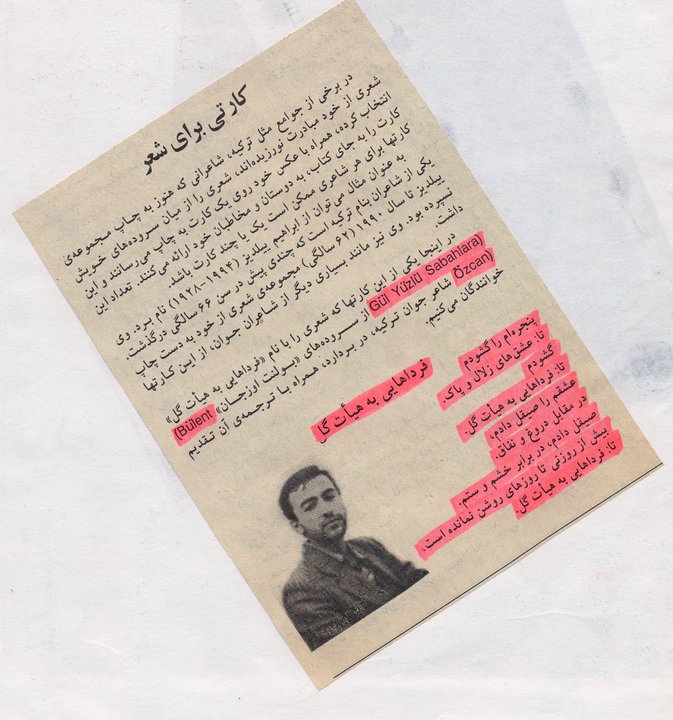 کارتی برای شعر
در برخی از جوامع مثل ترکیه، شاعرانی که هنوز به چاپ مجموعه‌ی
شعری از خود مبادرت نورزیده‌اند، شعری را از میان سروده‌های خویش
انتخاب کرده، همراه با عکس خود روی یک کارت به چاپ می‌رسانند و این
کارت را به جای کتاب، به دوستان و مخاطبان خود ارائه می‌کنند. تعداد این
کارتها برای هر شاعری ممکن است یک یا چند کارت باشد.
به عنوان مثال می‌توان از ابراهیم ییلدیز (۱۹۹۴-۱۹۲۸) نام برد. وی
یکی از شاعران بنام ترکیه است که چندی پیش در سن ۶۶ سالگی درگذشت.
ییلدیز تا سال ۱۹۹۰ (۶۲ سالگی) مجموعه‌ی شعری از خود به دست چاپ
نسپرده بود. وی نیز مانند بسیاری دیگر از شاعران جوان، از این کارتها
داشت.
در اینجا یکی از این کارتها که شعری را با نام «فرداهایی به هیأت گل»
(Gül Yüzlü Sabahlara) از سروده‌های «بولنت اوزجان» (Bülent
Özcan) شاعر جوان ترکیه، در بردارد، همراه با ترجمه‌ی آن تقدیم
خوانندگان می‌کنیم.
فرداهایی به هیأت گل
پنجره‌ام را گشودم
تا: عشق‌های زلال و پاک.
گشودم
تا: فرداهایی به هیأت گل.
عشقم را صیقل دادم،
در مقابل دروغ و نفاق.
صیقل دادم، در برابر خشم و ستم.
بیش از روزنی تا روزهای روشن نمانده است،
تا: فرداهایی به هیأت گل.